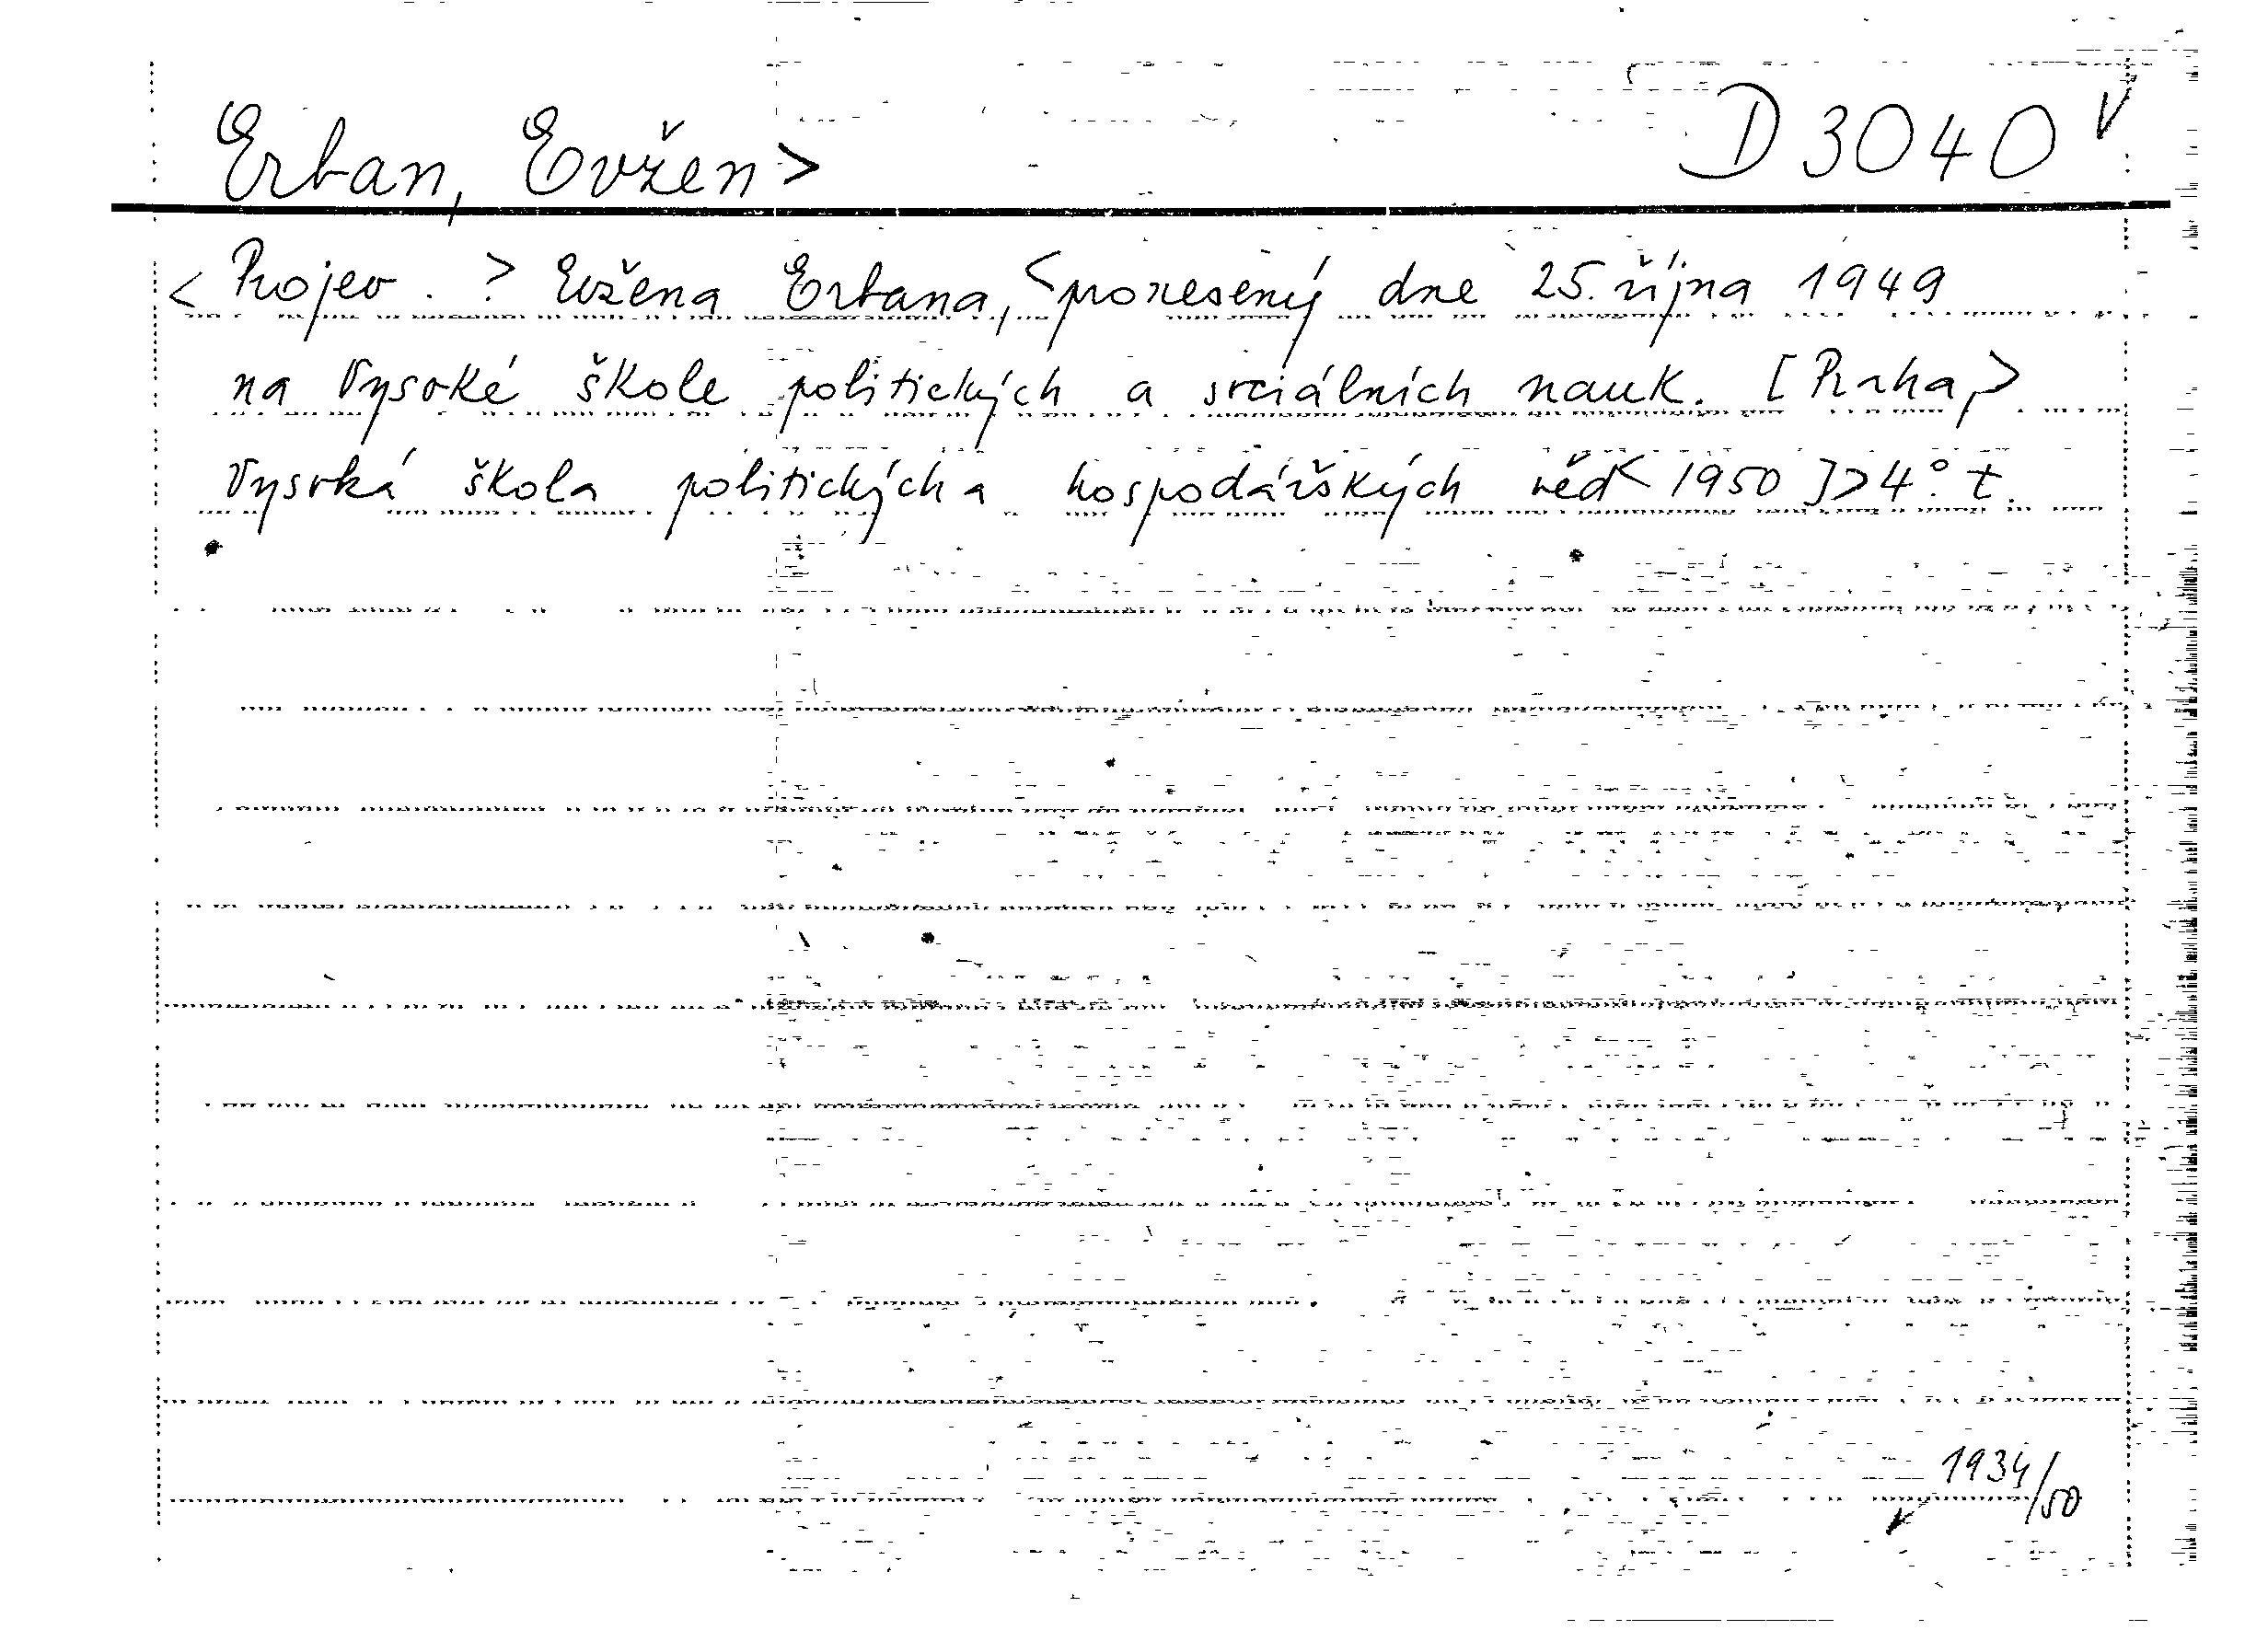 Erban, Evžen>
D 3040 V
< Projev. ? Evžena Erbana, < pronesený dne 25. října 1949
na Vysoké škole politických a sociálních nauk. [Praha,>
Vysoká škola politických a hospodářských věd < 1950 ]> 4°. t.
1934/50